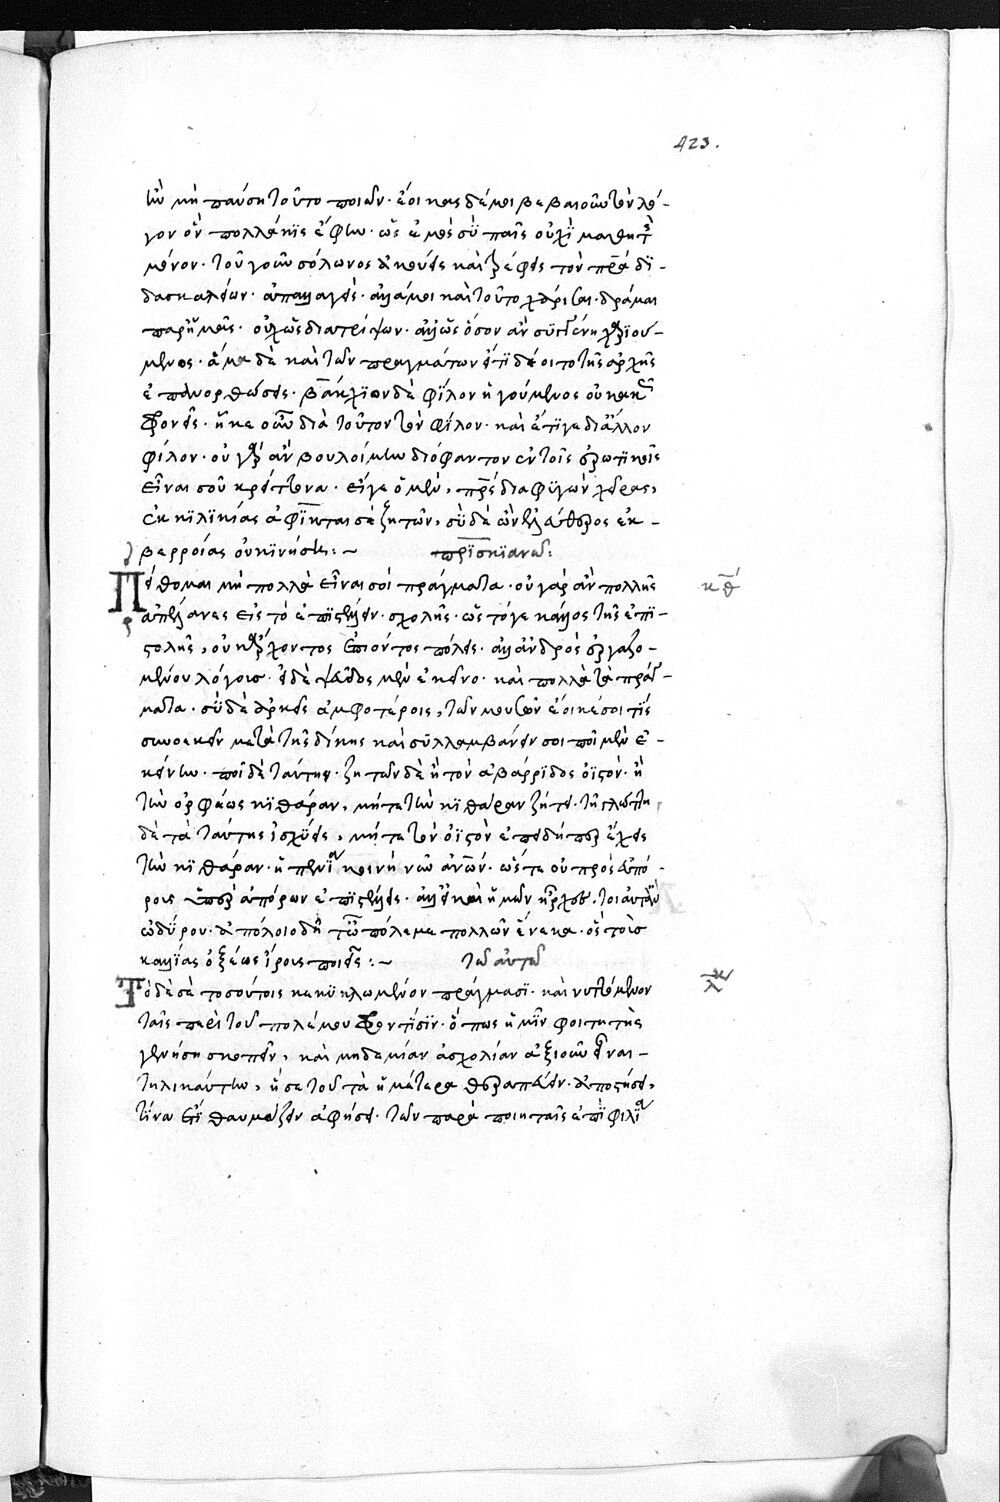 423.
τὼ μὴ παύση τοῦτο ποιῶν· ἔοικας δέ μοι βεβαιοῦν τὸν λό-
γον ὃν πολλάκις ἔφην· ὡς ἐμὸς σὺ παῖς οὐχὶ μαθητὴς
μόνον· τοῦ γοῦν σόλωνος ἀκούεις καὶ τὸν παρὰ δι-
δασκαλείων· ἀλλά μοι καὶ τοῦτο χάρισαι· δράμε
παρ' ἡμᾶς· οὐχ ὡς διατρίψων· ἀλλ' ὅσον ἂν συγγένη
ἅμα δὲ καὶ τῶν πραγμάτων ἔτι δέοι τὸ τῆς ἀρχῆς
ἐπανορθώσεις· φίλον ἡγούμενος οὐ κακῶς
φρονεῖς· ἧκε οὖν διὰ τοῦτον τὸν φίλον· καὶ ἔτι γε δι' ἄλλον
φίλον· οὐ γὰρ ἂν βουλοίμην διόφαντον ἐν τοῖς ἐρωτικοῖς
εἶναι σοῦ κρείττονα· εἴγε ὁ μὲν, πρέσ διαφυγὼν χεῖρας,
ἐκ κιλικίας ἀφῖκται σὲ ζητῶν, σὺ δὲ ὢν ἐλεύθερος ἐκ-
βερροίας οὐ κινήση:~ πρισκιανῶ:
Πείθομαι μὴ πολλὰ εἶναί σοι πράγματα· οὐ γὰρ ἂν πολλῆς
ἀπέλαυες εἰς τὸ ἐπιστέλλειν σχολῆς· ὡς τό γε κάλλος τῆς ἐπι-
στολῆς, οὐκ ἄρχοντος ἐπιόντος πόλεις· ἀλλ' ἀνδρὸς ἐργαζο-
μένου λόγους· ἢ δὲ ψεῦδος μὲν ἐκεῖνο· καὶ πολλὰ τὰ πράγ-
ματα· σὺ δὲ ἀρκεῖς ἀμφοτέροις, τῶν μουσῶν ἔοικέ σοι τις
συνοικεῖν μετὰ τῆς δίκης καὶ συλλαμβάνειν σοι ποῖ μὲν ἐ-
κείνην· ποῖ δὲ ταύτην· ζητῶν δὲ ἢ τὸν ἀβάριδος οἰστὸν· ἢ
τὴν ὀρφέως κιθάραν, μήτε τὴν κιθάραν ζήτει· τῇ γλώττῃ
δὲ τὰ ταύτης ἰσχύεις, μήτε τὸν οἰστὸν ἐπειδήπερ ἔχεις
τὴν κιθάραν· ἡ πενία κοινὴ νῶν· ὥστε οὐ πρὸς εὐπό-
ρους ὑπὲρ ἀπόρων ἐπιστέλλεις·
ὠδύρου· ἀπόλοιο δῆτα ὦ πόλεμε πολλῶν ἕνεκα· ὃς τοὺς
καλλίας ὀξέως ἴρους ποιεῖς:~ τῶ αὐτῶ
Τὸ δὲ σὲ τοσούτοις κεκυκλωμένον πράγμασι· καὶ νυττόμενον
ταῖς περὶ τοῦ πολέμου φροντίσιν· ὅπως ἡμῖν φοιτητὴς
γένηται σκοπεῖν, καὶ μηδεμίαν ἀσχολίαν ἀξιοῦν εἶναι-
τηλικαύτην, ἥ σε τοῦ τὰ ἡμέτερα θεραπεύειν ἀποστήσει,
τίνα ἔτι θαυμάζειν ἀφήσει τῶν παρὰ ποιηταῖς ἐπὶ φιλία
κθ
λ